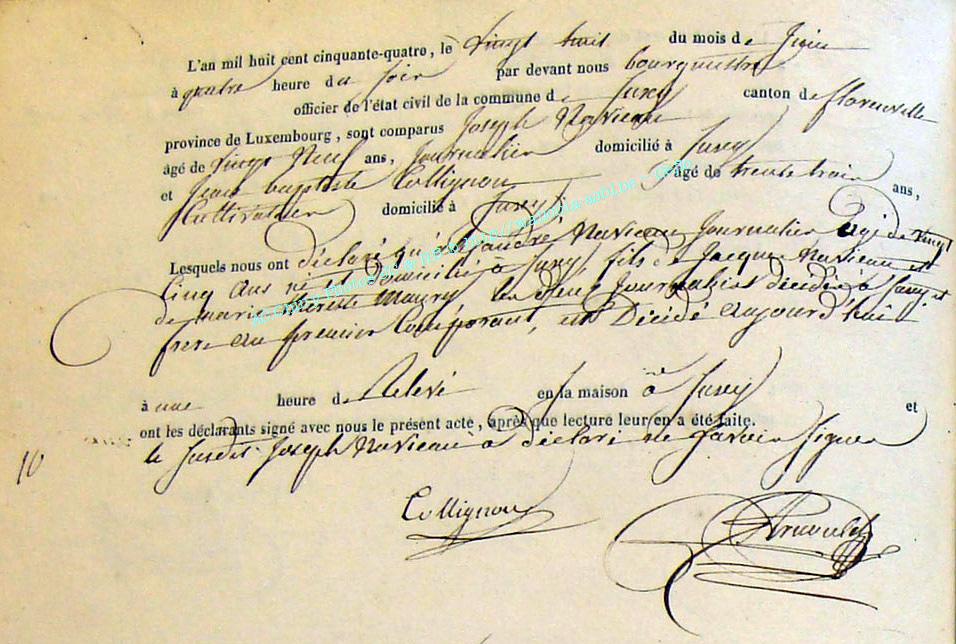 L'an mil huit cent cinquante-quatre, le vingt huit du mois de Juin
à quatre heure des soir par devant nous bourgmestre
officier de l'état civil de la commune de Suxy canton de florenville
province de Luxembourg, sont comparus Joseph Navieau
âgé de vingt Neuf ans, Journalier domicilié à Suxy
et Jean baptiste Collignon âgé de trente trois ans,
Cultivateur domicilié à Suxy
Lesquels nous ont déclaré qu'
Navieau Journalier agé de vingt
Cinq ans né et Domicilié à Suxy, fils de Jacques Navieau et
de marie Maury les deux Journaliers décédés à Suxy et
frere au premier Comparant, est Décédé aujourd'hui
à une heure de Relevé en la maison à Suxy et
ont les déclarants signé avec nous le présent acte, après que lecture leur en a été faite.
le susdit Joseph Navieau à déclaré ne savoir signer
10
Collignon